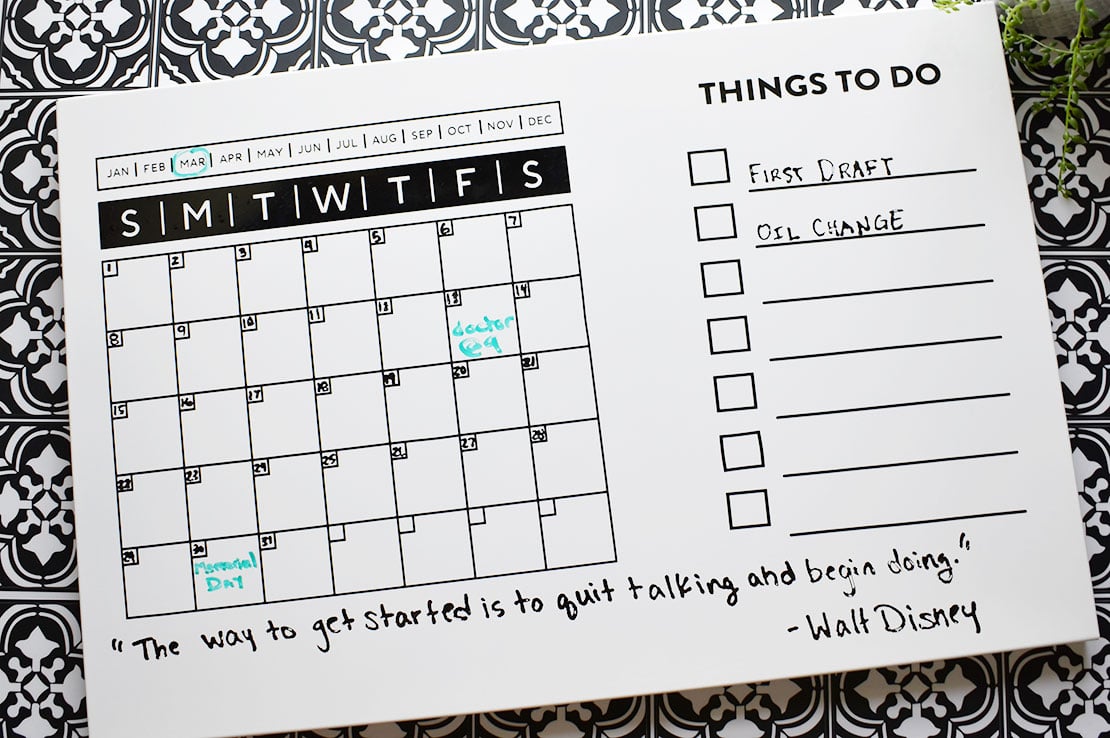 THINGS TO DO
JAN | FEB | MAR | APR | MAY | JUN | JUL | AUG | SEP | OCT | NOV | DEC
S | M | T | W | T | F | S
1 2 3 4 5 6 7
8 9 10 11 12 13 14
doctor
@9
15 16 17 18 19 20 21
22 23 24 25 26 27 28
29 30 31
Memorial
Day
FIRST DRAFT
OIL CHANGE
"The way to get started is to quit talking and begin doing."
-Walt Disney